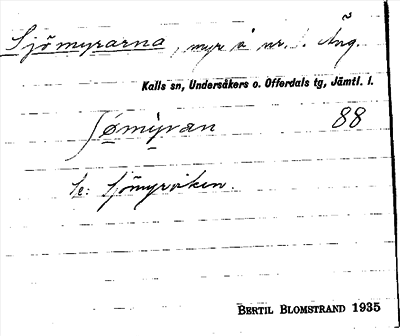 Sjömyrarna, myr å nr. Äng.
Kalls sn, Undersåkers o. Offerdals tg, Jämtl. l.
sømyran 88
Se: Sjömyrviken.
BERTIL BLOMSTRAND 1935